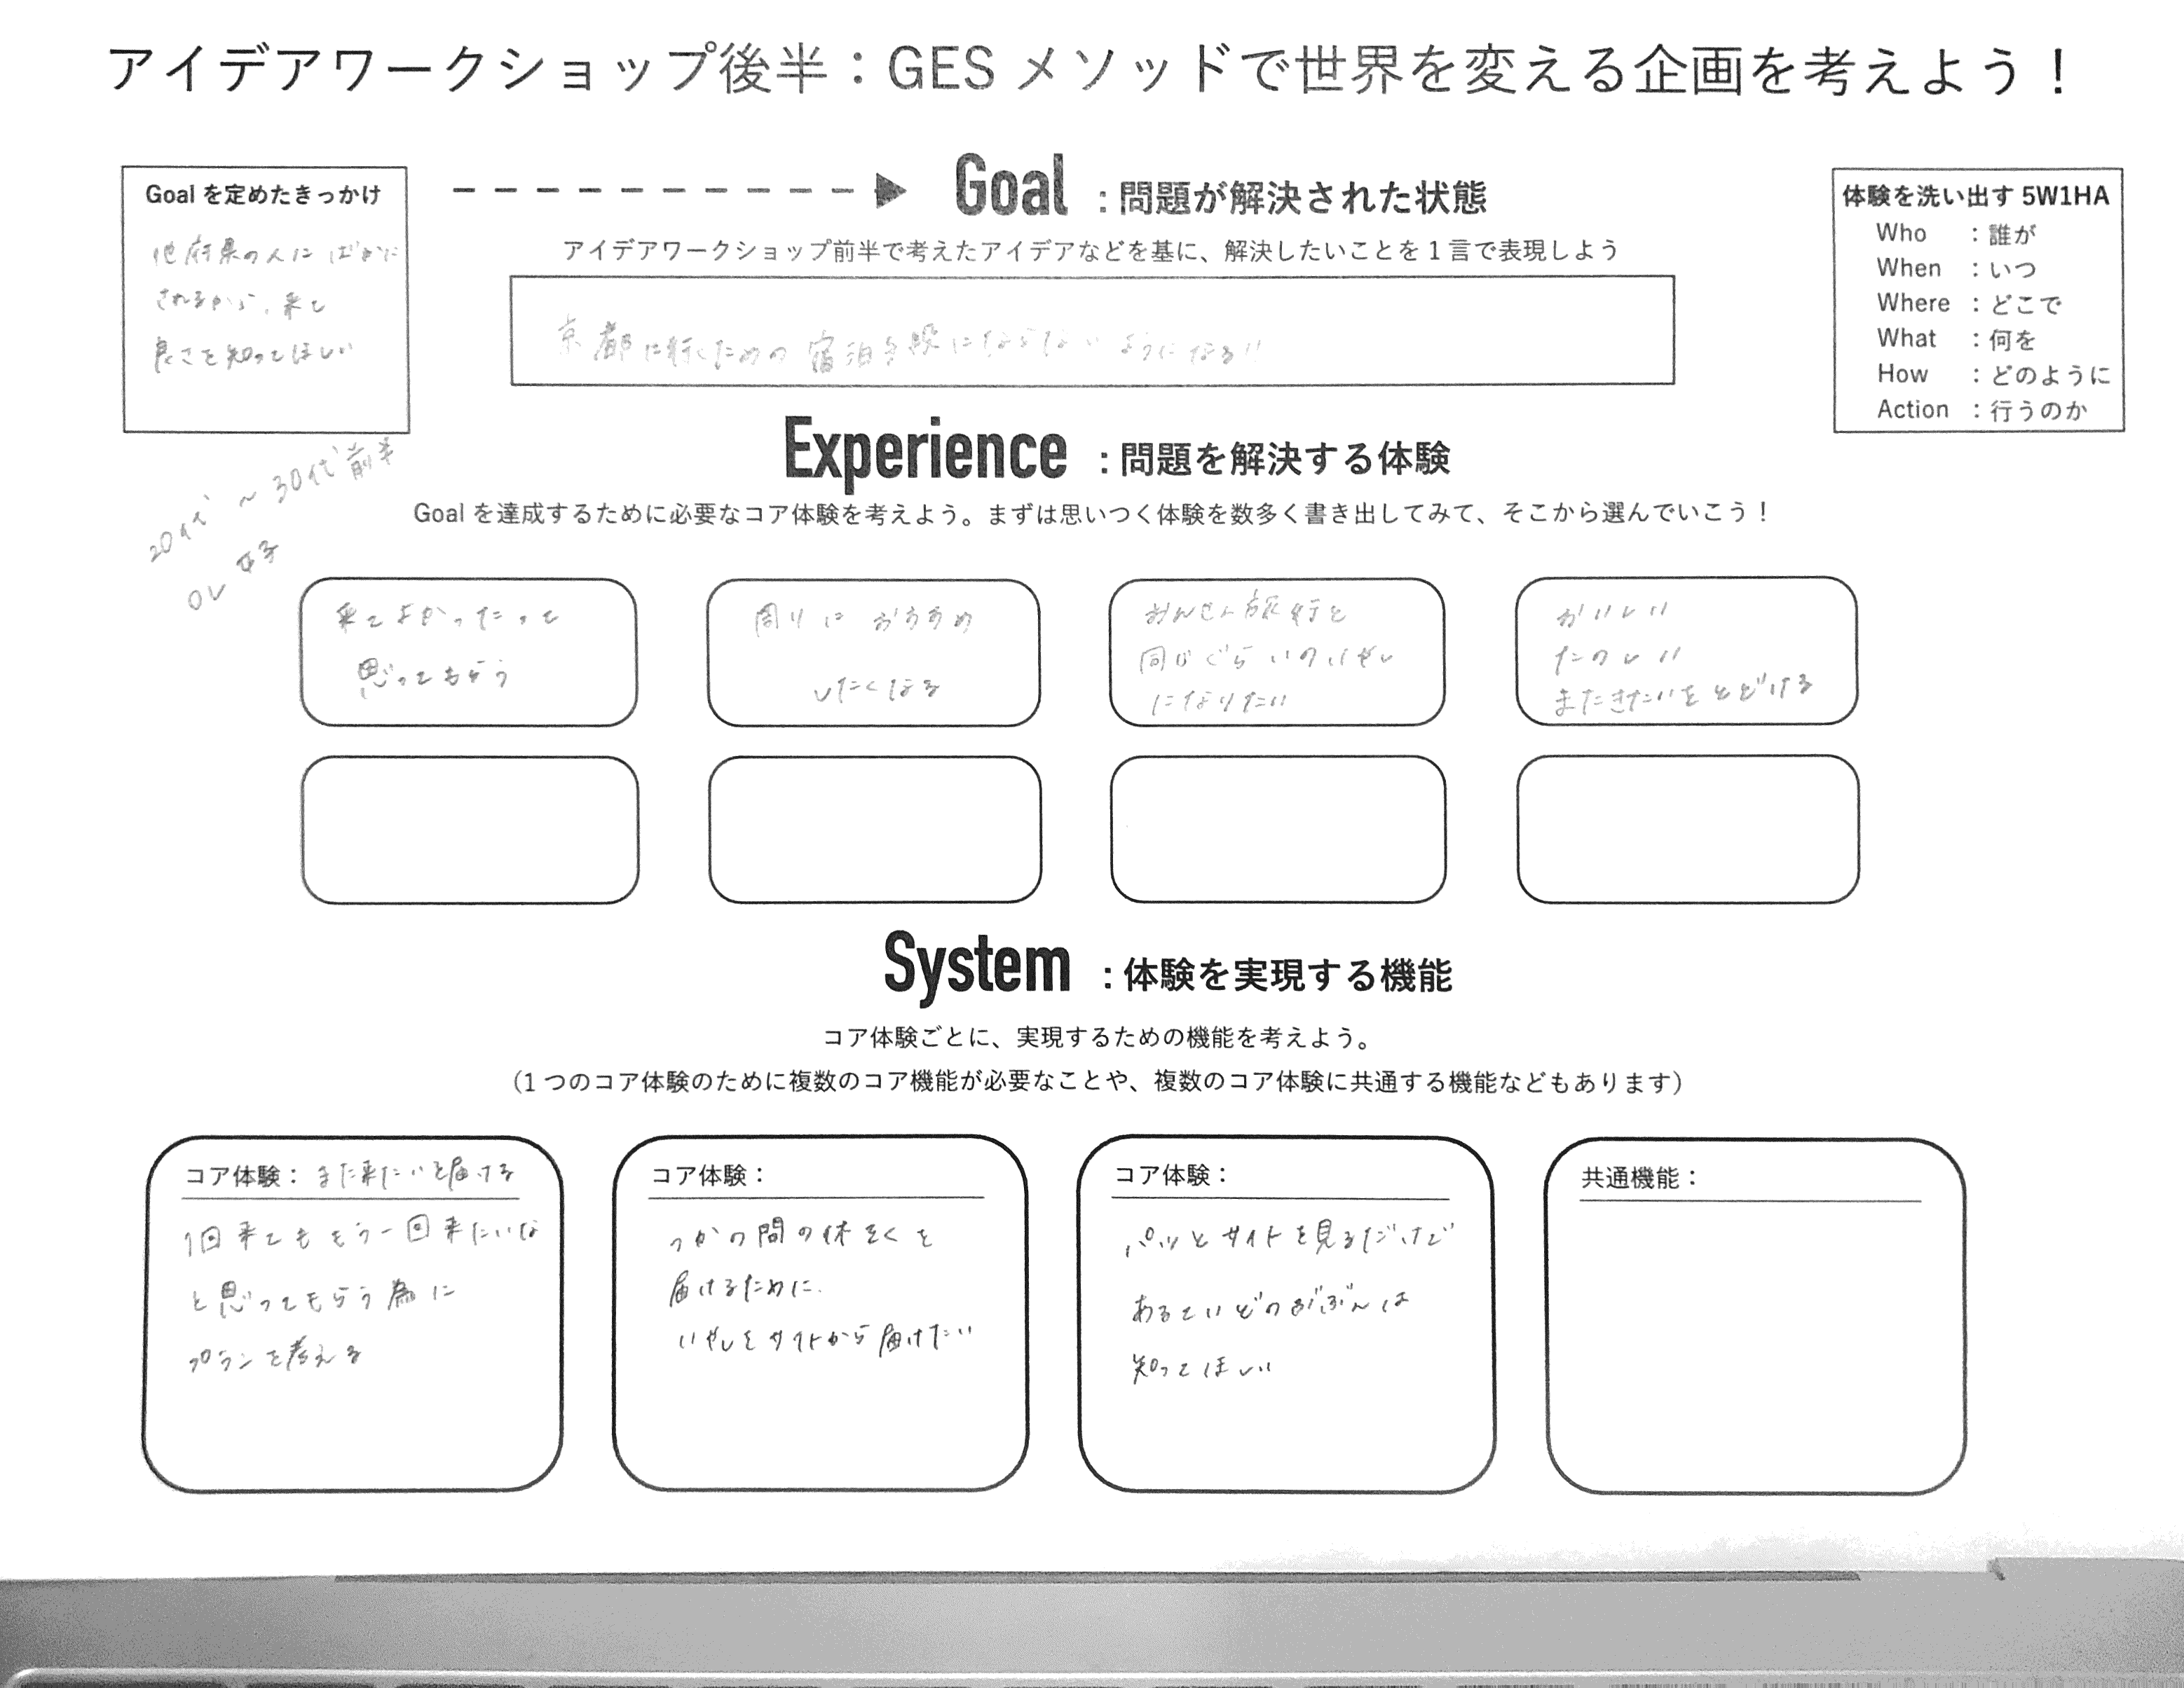 アイデアワークショップ後半：GES メソッドで世界を変える企画を考えよう！
Goal を定めたきっかけ
他府県の人に ばかに
されるから、来て
良さを知ってほしい
Goal ：問題が解決された状態
アイデアワークショップ前半で考えたアイデアなどを基に、解決したいことを1言で表現しよう
京都に行くための宿泊手段にならないようになる!!
体験を洗い出す 5W1HA
Who ：誰が
When ：いつ
Where ：どこで
What ：何を
How ：どのように
Action ：行うのか
20代 〜 30代前半
OL 女子
Experience ：問題を解決する体験
Goal を達成するために必要なコア体験を考えよう。まずは思いつく体験を数多く書き出してみて、そこから選んでいこう！
来てよかったって
思ってもらう
周りに おすすめ
したくなる
おんせん旅行と
同じぐらいのいやし
になりたい
かいしい
たのしい
またきたいをとどける
System ：体験を実現する機能
コア体験ごとに、実現するための機能を考えよう。
（1つのコア体験のために複数のコア機能が必要なことや、複数のコア体験に共通する機能などもあります）
コア体験： また来たいを届ける
1回来てももう一回来たいな
と思ってもらう為に
プランを考える
コア体験：
つかの間の休そくを
届けるために.
いやしをサイトから届けたい
コア体験：
パッとサイトを見るだけで
あるていどのぶぶんは
知ってほしい
共通機能：